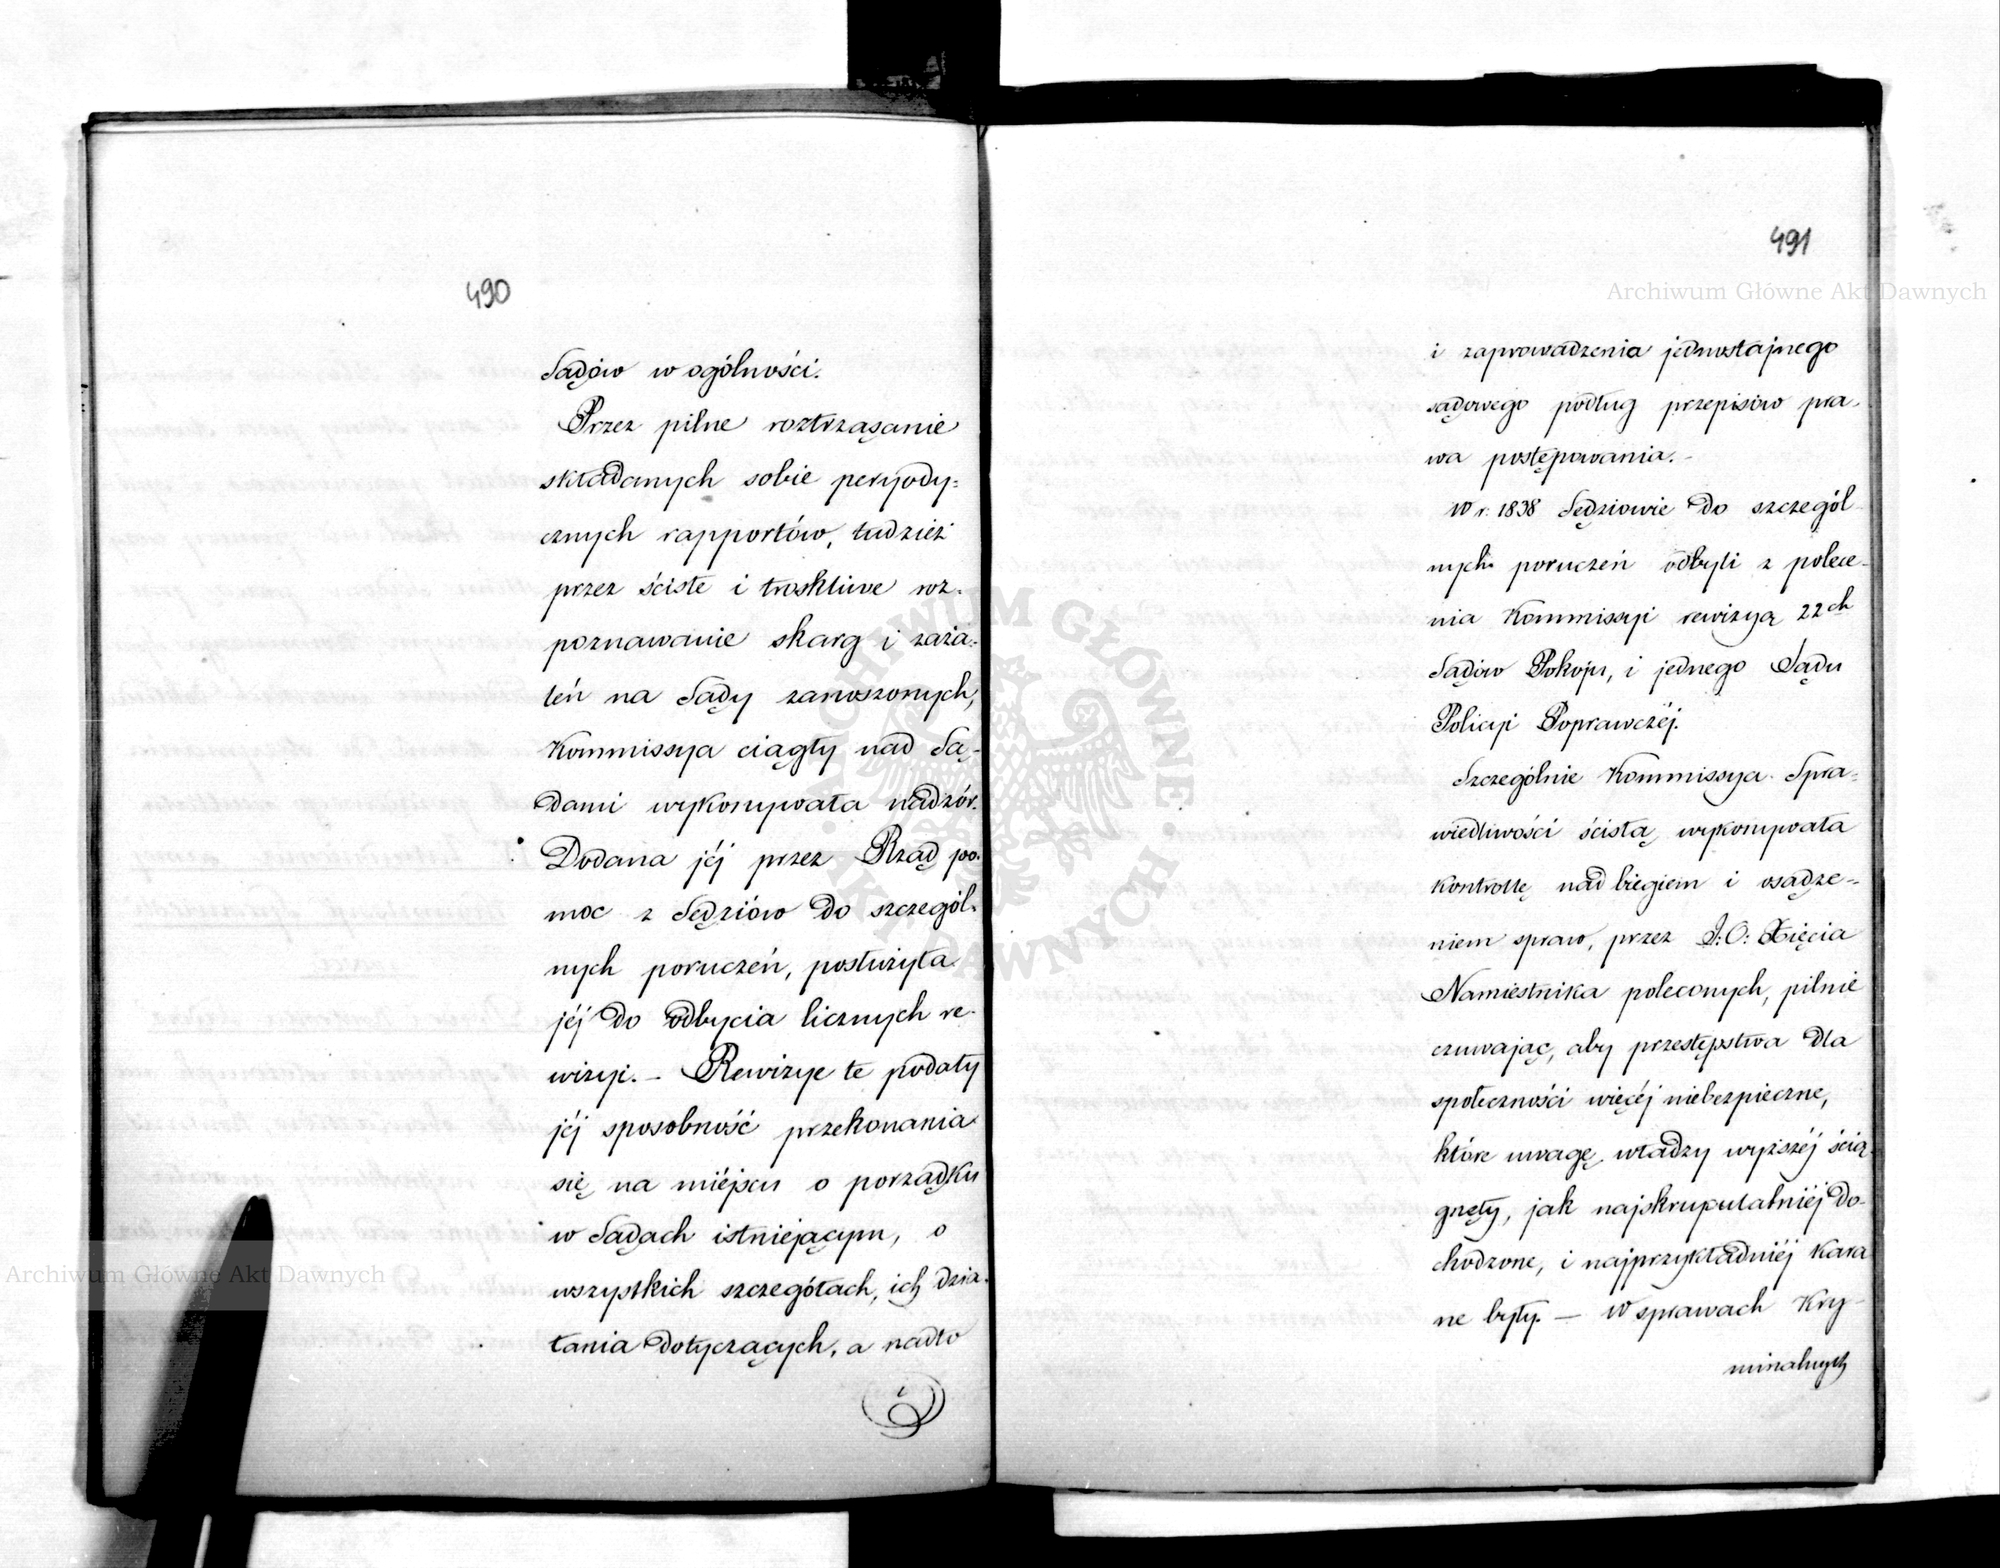 490
Sądów w ogólności.
Przez pilne roztrząsanie
składanych sobie peryody=
cznych rapportów, tudzież
przez ścisłe i troskliwe roz-
poznawanie skarg i zaża-
leń na Sądy zanoszonych,
Kommissya ciągły nad Są-
dami wykonywała nadzór.
Dodana jéj przez Rząd po-
moc z Sędziów do szczegól-
nych poruczeń, posłużyła
jéj do odbycia licznych re-
wizyi. — Rewizye te podały
jéj sposobność przekonania
się na miéjscu o porządku
w Sądach istniejącym, o
wszystkich szczegółach, ich dzia-
łania dotyczących, a nadto
491
i zaprowadzenia jednostajnego
sądowego podług przepisów pra-
wa postępowania. -
W r. 1838 Sędziowie do szczegól-
nych poruczeń odbyli z polece-
nia Kommissyi rewizyą 22ch
Sądów Pokoju, i jednego Sądu
Policyi Poprawczéj.
Szczególnie Kommissya Spra-
wiedliwości ścisłą wykonywała
kontrollę nad biegiem i osądze-
niem spraw, przez J: O: Xięcia
Namiestnika poleconych, pilnie
czuwając, aby przestępstwa dla
społeczności więcéj niebezpieczne,
które uwagę władzy wyższéj ścią-
gnęły, jak najskrupulatniéj do-
chodzone, i najprzykładniéj kara
ne były. — W sprawach Kry-
minalnych
Archiwum Główne Akt Dawnych
Archiwum Główne Akt Dawnych
ARCHIWUM GŁÓWNE AKT DAWNYCH